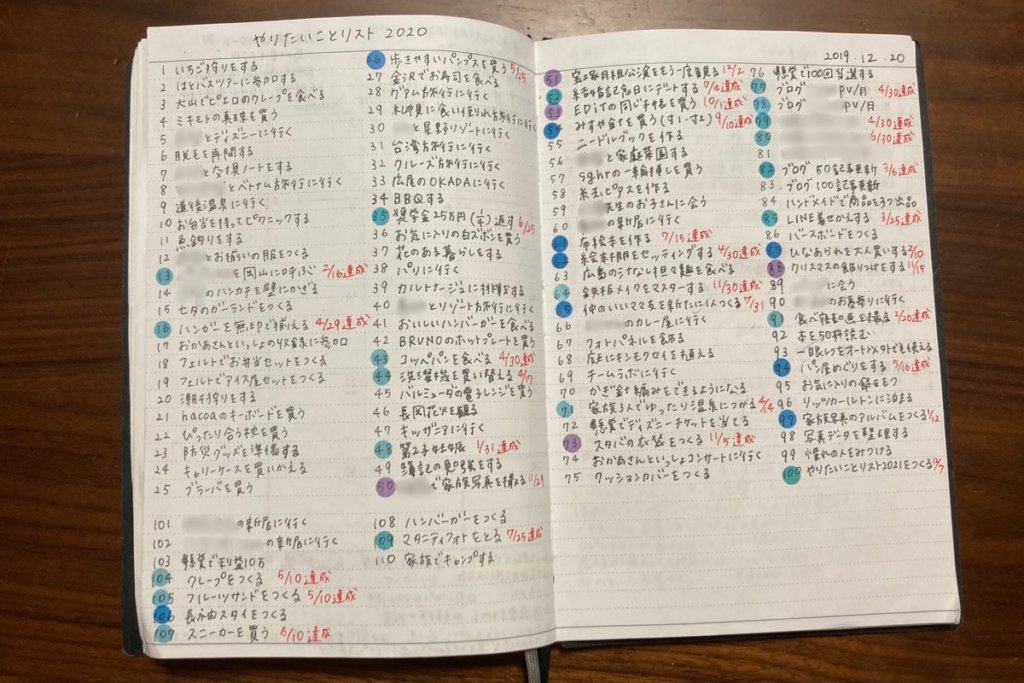 やりたいことリスト 2020
1 いちご狩りをする
2 はとバスツアーに参加する
3 大山でピエロのクレープを食べる
4 ミキモトの真珠を買う
5 とディズニーに行く
6 脱毛を再開する
7 と交換ノートをする
8 とベトナム旅行に行く
9 道後温泉に行く
10 お弁当を持ってピクニックする
11 魚釣りをする
12 とお揃いの服をつくる
13 を岡山に呼ぶ 2/16達成
14 のハンカチを壁にかざる
15 七夕のガーランドをつくる
16 ハンガーを無印で揃える 4/29達成
17 おかあさんといっしょの収録に参加
18 フェルトでお弁当セットをつくる
19 フェルトでアイス屋セットをつくる
20 潮干狩りをする
21 hacoaのキーボードを買う
22 ぴったり合う枕を買う
23 防災グッズを準備する
24 キャリーケースを買いかえる
25 ブラーバを買う
101 の新居に行く
102 の新居に行く
103 懸賞で利益10万
104 クレープをつくる 5/10達成
105 フルーツサンドをつくる 5/10達成
106 長袖スタイをつくる
107 スニーカーを買う 6/10達成
26 歩きやすいパンプスを買う 5/25
27 金沢でお寿司を食べる
28 グアム旅行に行く
29 札幌に食い倒れ旅行に行く
30 と星野リゾートに行く
31 台湾旅行に行く
32 クルーズ旅行に行く
33 広尾のOKADAに行く
34 BBQする
35 奨学金25万円 返す 6/25
36 お気に入りの白ズボンを買う
37 花のある暮らしをする
38 パリに行く
39 カルトナージュに挑戦する
40 とリゾート旅行に行く
41 おいしいハンバーガーを食べる
42 BRUNOのホットプレートを買う
43 コッペパンを食べる 4/30達成
44 洗濯機を買い替える 4/7
45 バルミューダの電子レンジを買う
46 長岡花火を観る
47 キッザニアに行く
48 第2子妊娠 1/31達成
49 簿記の勉強をする
50 で家族写真を撮る 11/29
108 ハンバーガーをつくる
109 マタニティフォトをとる 7/25達成
110 家族でキャンプする
2019.12.20
51 宝塚月組公演をもう一度観る 12/2
52 結婚記念日にデートする 7/4達成
53 EDiTの同じ手帳を買う 10/1達成
54 みすや針を買う 9/10達成
55 ニードルブックを作る
56 と家庭菜園する
57 sghrの一輪挿しを買う
58 糸玉ピアスを作る
59 先生のお子さんに会う
60 の新居に行く
61 布絵本を作る 7/15達成
62 絵本棚をセッティングする 4/30達成
63 広島の汁なし担々麺を食べる
64 鉄板メイクをマスターする 11/30達成
65 仲のいいママ友を新たに1人つくる 7/31
66 のカレー屋に行く
67 フォトパネルを飾る
68 庭にキンモクセイを植える
69 チームラボに行く
70 かぎ針編みをできるようになる
71 家族3人でゆったり温泉につかる 4/14
72 懸賞でディズニーチケットを当てる
73 スタバの衣装をつくる 11/5達成
74 おかあさんといっしょコンサートに行く
75 クッションカバーをつくる
76 懸賞で100回当選する
77 ブログ PV/月 4/30達成
78 ブログ PV/月
79 4/30達成
80 6/30達成
81
82 ブログ 50記事更新 3/6達成
83 ブログ 100記事更新
84 ハンドメイドで商品を3つ出品
85 LINE着せかえする 3/25達成
86 バースボードをつくる
87 ひなあられを大人買いする 2/10
88 クリスマスの飾りつけをする 11/15
89 に会う
90 のお墓参りに行く
91 食べ寝相の画を撮る 2/20達成
92 本を50冊読む
93 一眼レフをオート以外でも使える
94 パン屋めぐりをする 5/16達成
95 お気に入りの盆をもつ
96 リッツカールトンに泊まる
97 家族写真のアルバムをつくる 1/12
98 写真データを整理する
99 憧れの人をみつける
100 やりたいことリスト2021をつくる 9/7